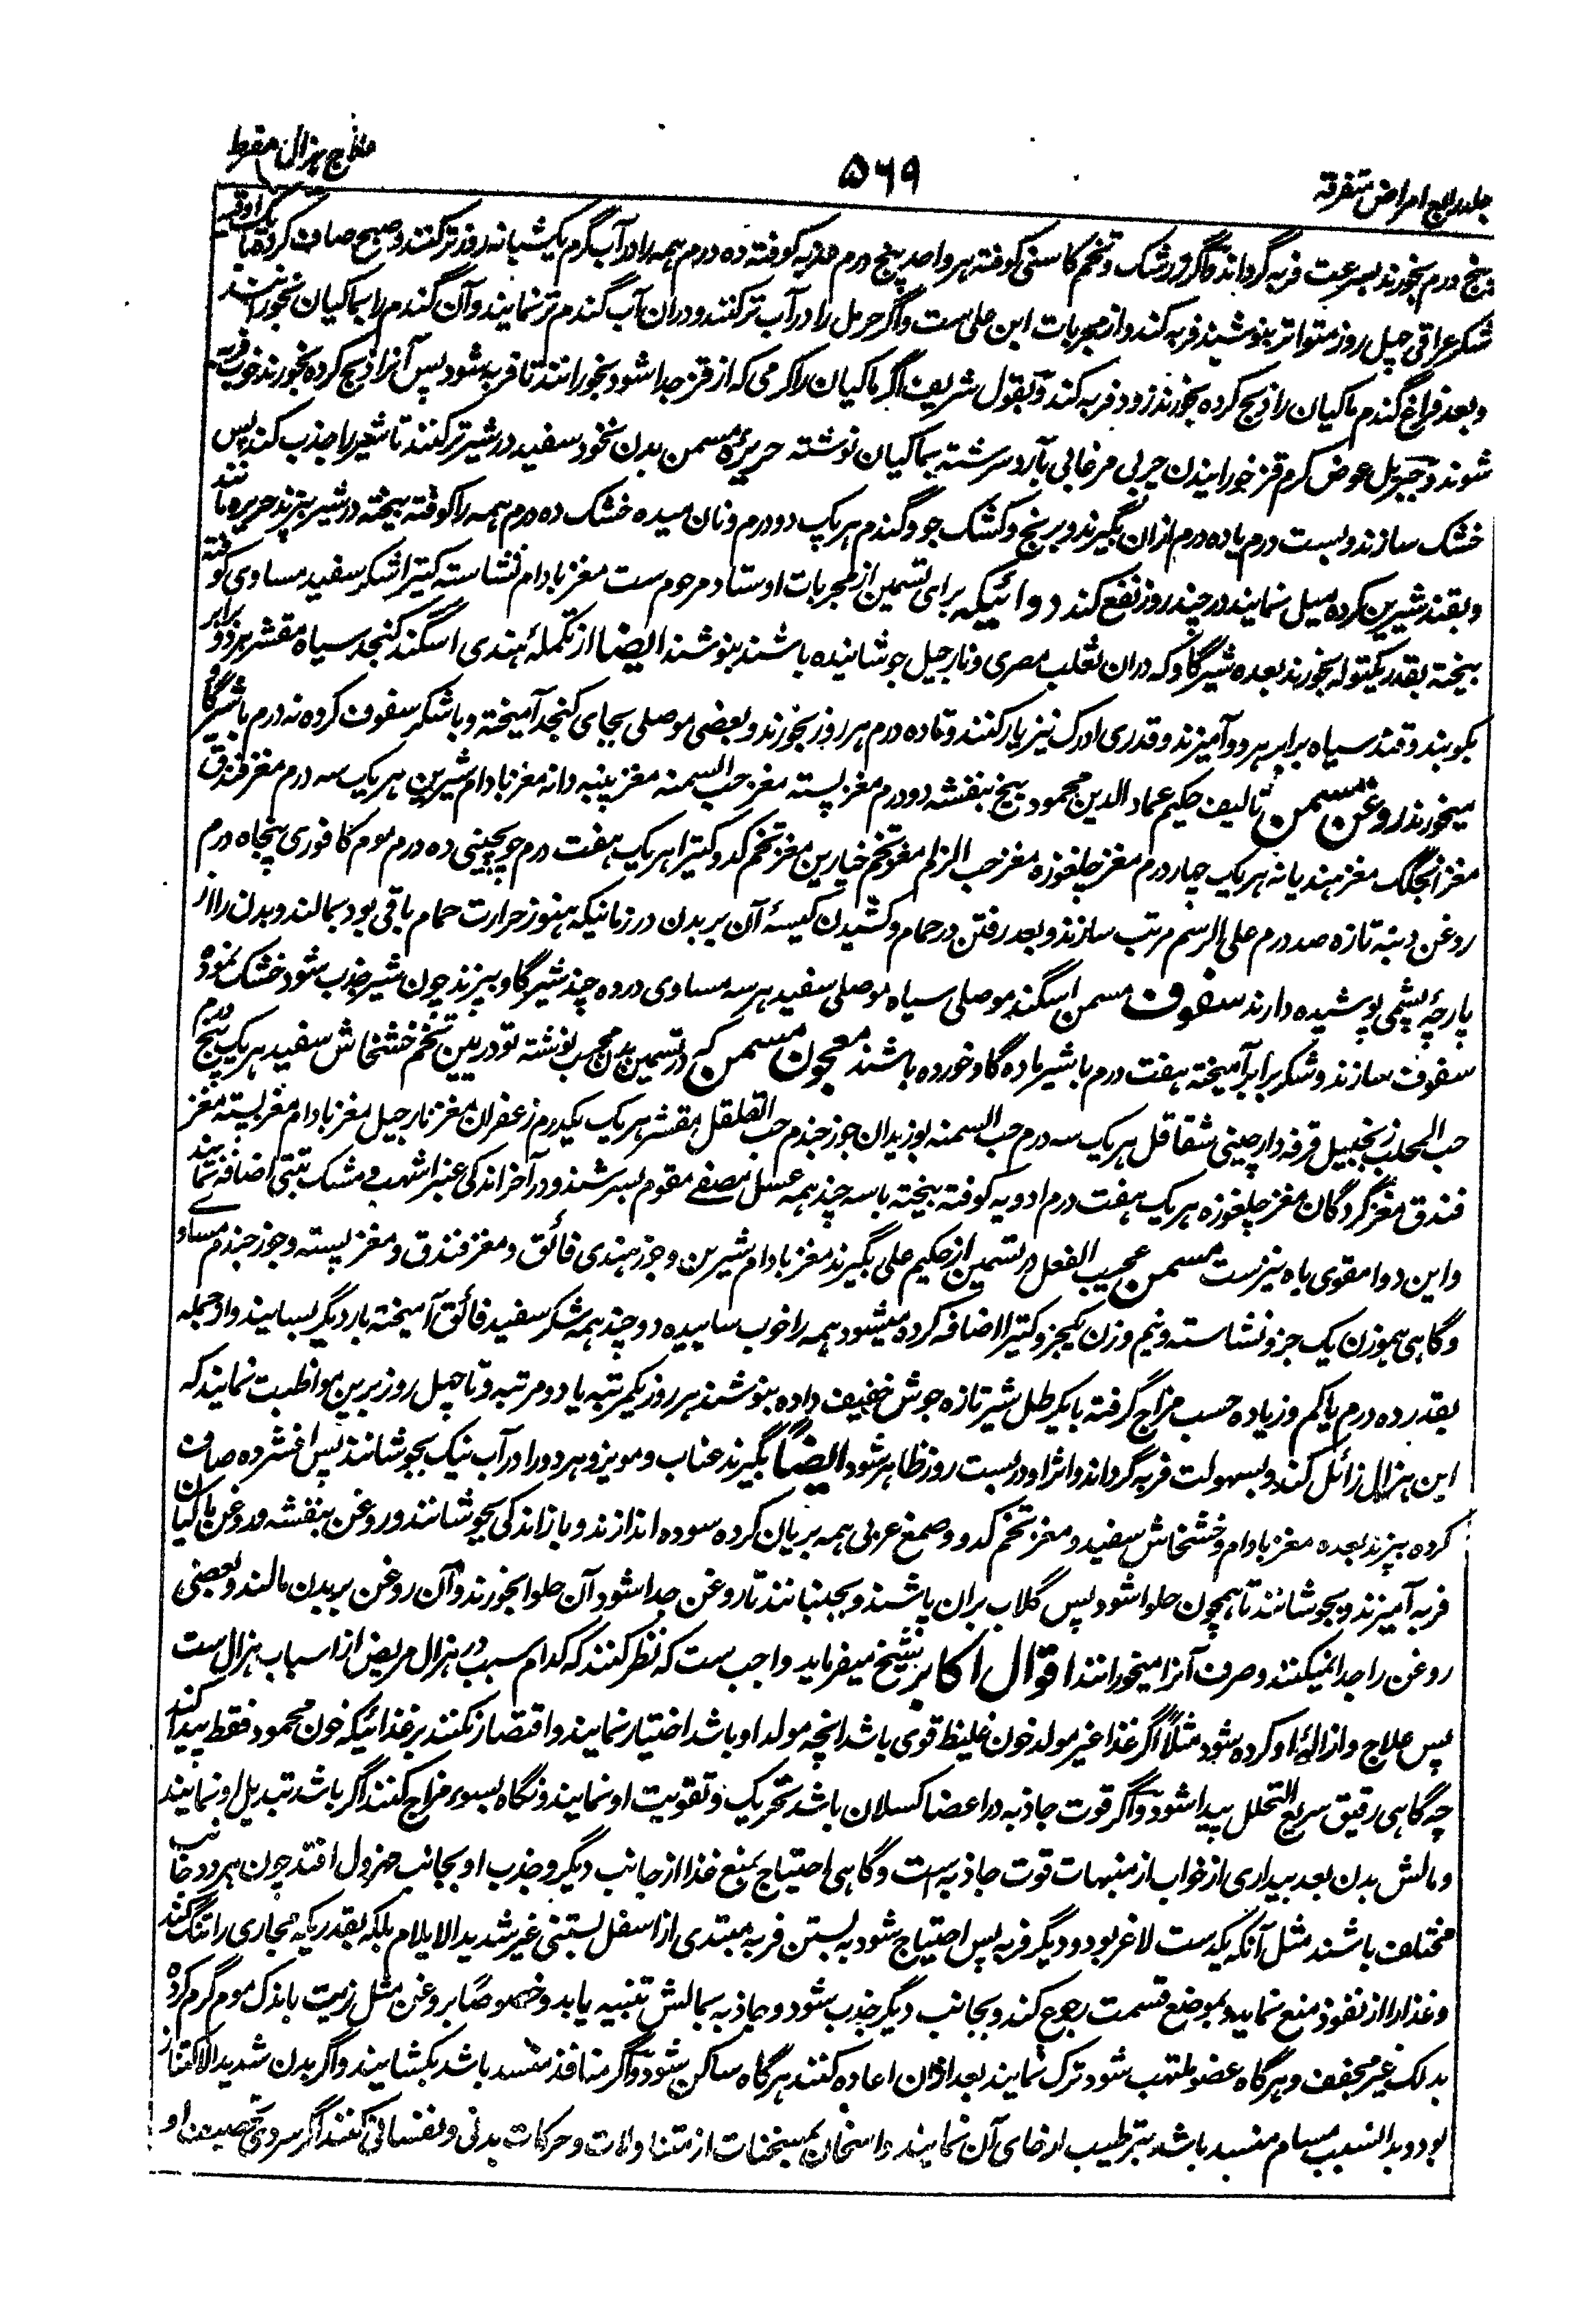 جلد رابع امراض متفرقه
۵۶۹
علاج هزال مفرط
پنج درم بخورند بسرعت فربه گرداند و اگر زرشک و تخم کاسنی کوفته هر واحد پنج درم مغربه کوفته ده درم همه را در آب گرم یکشبانه روز تر کنند و صبح صاف کرده با یک اوقیه
شکر عراقی چهل روز متواتر بنوشند فربه کند و از مجربات ابن علی ست و اگر حرمل را در آب تر کنند و دران آب گندم تر نمایند و آن گندم را بماکیان بخورانند
و بعد فراغ گندم ماکیان را ذبح کرده بخورند زود فربه کند و بقول شریف اگر ماکیان را کرمی که از قز جدا شود بخورانند تا فربه شود پس آنرا ذبح کرده بخورند خوب فربه
شوند و جبریل عوض کرم قز خورانیدن چربی مرغابی بآرد سرشته بماکیان نوشته حریرهٔ مسمن بدن نخود سفید در شیر تر کنند تا شیر را جذب کند پس
خشک سازند و بست درم یا ده درم ازان بگیرند و برنج و کشک جو و گندم هر یک دو درم و نان میده خشک ده درم همه را کوفته بیخته در شیر بپزند حریره مانند
و بقند شیرین کرده میل نمایند در چند روز نفع کند دوائیکه برای تسمین از مجربات اوستاد مرحوم ست مغز بادام نشاسته کتیرا شکر سفید مساوی کوفته
بیخته بقدر یکتوله بخورند بعده شیر گاو که دران ثعلب مصری و نارجیل جوشانیده باشند بنوشند ایضا از تکملهٔ هندی اسگند کنجد سیاه مقشر هر دو برابر
بکوبند و قند سیاه برابر هر دو آمیزند و قدری ادرک نیز یار کنند و تا ده درم هر روز بخورند و بعضی موصلی بجای کنجد آمیخته و با شکر سفوف کرده نه درم با شیر گاو
میخورند روغن مسمن تالیف حکیم عماد الدین محمود بیخ بنفشه دو درم مغز پسته مغز حب السمنه مغز پنبه دانه مغز بادام شیرین هر یک سه درم مغز فندق
مغز انجلک مغز هندیانه هر یک چهار درم مغز چلغوزه مغز حب الزلم مغز تخم خیارین مغز تخم کدو کتیرا هر یک هفت درم چوبچینی ده درم موم کافوری پنجاه درم
روغن دنبه تازه صد درم علی الرسم مرتب سازند و بعد رفتن در حمام و کشیدن کیسهٔ آن بر بدن در زمانیکه هنوز حرارت حمام باقی بود بمالند و بدن را از
پارچهٔ پشمی پوشیده دارند سفوف مسمن اسگند موصلی سیاه موصلی سفید هر سه مساوی در ده چند شیر گاو بپزند چون شیر جذب شود خشک نموده
سفوف سازند و شکر برابر آمیخته هفت درم با شیر ماده گاو خورده باشند معجون مسمن که در تسمین بدن مجرب نوشته تودریین تخم خشخاش سفید هر یک پنج درم
حب المحلب زنجبیل قرفه دارچینی شقاقل هر یک سه درم حب السمنه بوزیدان جوز جندم حب القلقل مقشر هر یک یکدرم زعفران مغز نارجیل مغز بادام مغز پسته مغز
فندق مغز گردگان مغز چلغوزه هر یک هفت درم ادویه کوفته بیخته با سه چند همه عسل مصفے مقوم بسرشند و در آخر اندکی عنبر اشهب و مشک تبتی اضافه نمایند
و این دوا مقوی باه نیز ست مسمن عجیب الفعل در تسمین از حکیم علی بگیرند مغز بادام شیرین و جوز هندی فائق و مغز فندق و مغز پسته و جوز جندم مساوے
و گاهی هموزن یک جزو نشاسته و نیم وزن یکجزو کتیرا اضافه کرده میشود همه را خوب سائیده دو چند همه شکر سفید فائق آمیخته بار دیگر بسایند و از جمله
بقدر ده درم یا کم و زیاده حسب مزاج گرفته با یکرطل شیر تازه جوش خفیف داده بنوشند هر روز یکمرتبه یا دو مرتبه و تا چهل روز برین مواظبت نمایند که
این هزال زائل کند و بسهولت فربه گرداند و اثر او در بست روز ظاهر شود ایضاً بگیرند عناب و مویز و هر دو را در آب نیک بجوشانند پس افشرده صاف
کرده بپزند بعده مغز بادام و خشخاش سفید و مغز تخم کدو و صمغ عربی همه بریان کرده سوده اندازند و باز اندکی بجوشانند و روغن بنفشه و روغن ماکیان
فربه آمیزند و بجوشانند تا همچون حلوا شود پس گلاب بران پاشند و بجنبانند تا روغن جدا شود آن حلوا بخورند و آن روغن بر بدن مالند و بعضی
روغن را جدا نمیکنند و صرف آنرا میخورانند اقوال اکابر شیخ میفرماید واجب ست که نظر کنند که کدام سبب در هزال مریض از اسباب هزال ست
پس علاج و ازالهٔ او کرده شود مثلاً اگر غذا غیر مولد خون غلیظ قوی باشد انچه مولد او باشد اختیار نمایند و اقتصار نکنند بر غذائیکه خون محمود فقط پیدا کند
چه گاهی رقیق سریع التحلل پیدا شود و اگر قوت جاذبه در اعضا کسلان باشد تحریک و تقویت او نمایند و نگاه بسوء مزاج کنند اگر باشد تبدیل او نمایند
و مالش بدن بعد بیداری از خواب از منبهات قوت جاذبه ست و گاهی احتیاج بمنع غذا از جانب دیگر و جذب او بجانب مهزول افتد چون هر دو جانب
مختلف باشند مثل آنکه یکدست لاغر بود و دیگر فربه پس احتیاج شود به بستن فربه مبتدی از اسفل بستنی غیر شدید الایلام بلکه بقدریکه مجاری را تنگ کند
و غذا را از نفوذ منع نماید و بموضع قسمت رجوع کند و بجانب دیگر جذب شود و جاذبه بمالش تنبیه یابد و خصوصاً بروغن مثل زیت باندک موم گرم کرده
بدلک غیر مجفف و هر گاه عضو ملتهب شود ترک نمایند بعد ازان اعاده کنند هر گاه ساکن شود و اگر منافذ منسد باشد بکشایند و اگر بدن شدید الاکتناز
بود و بدانسبب مسام منسد باشد بترطیب ارخای آن نمایند و اسخان بمسخنات از متناولات و حرکات بدنی و نفسانی کنند اگر سردی